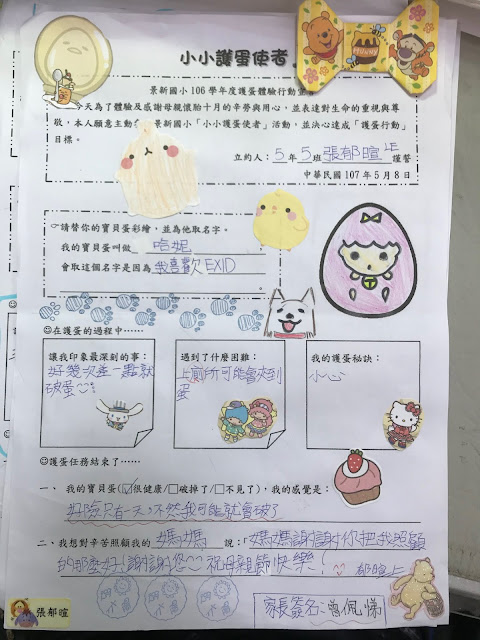 小小護蛋使者
景新國小 106 學年度護蛋體驗行動宣
今天為了體驗及感謝母親懷胎十月的辛勞與用心，並表達對生命的重視與尊
敬，本人願意主動 景新國小「小小護蛋使者」活動，並決心達成「護蛋行動」
目標。
立約人：5年5班張郁暄 謹誓
中華民國 107 年 5 月 8 日
☞請替你的寶貝蛋彩繪，並為他取名字。
我的寶貝蛋叫做 哈妮
會取這個名字是因為 我喜歡EXID
。
☺在護蛋的過程中……
讓我印象最深刻的事：
好幾次差一點就
破蛋
遇到了什麼困難：
上廁所可能會夾到
蛋
我的護蛋秘訣：
小心
☺護蛋任務結束了……
一、 我的寶貝蛋(☑很健康/□破掉了/□不見了)，我的感覺是：
好險只有一天，不然我可能就會破了
二、我想對辛苦照顧我的 媽媽 說：「媽媽謝謝你把我照顧
的那麼好！謝謝您 祝母親節快樂！
郁暄上
張郁暄
家長簽名：曾佩悌